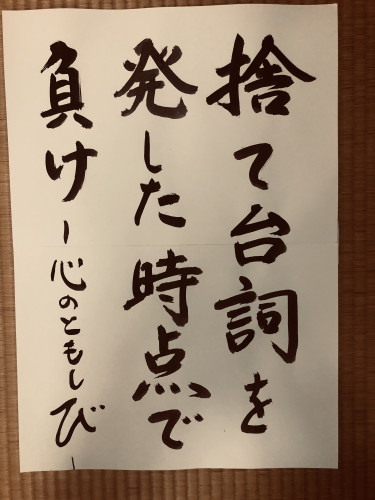 捨て台詞を
発した時点で
負け ー心のともしびー